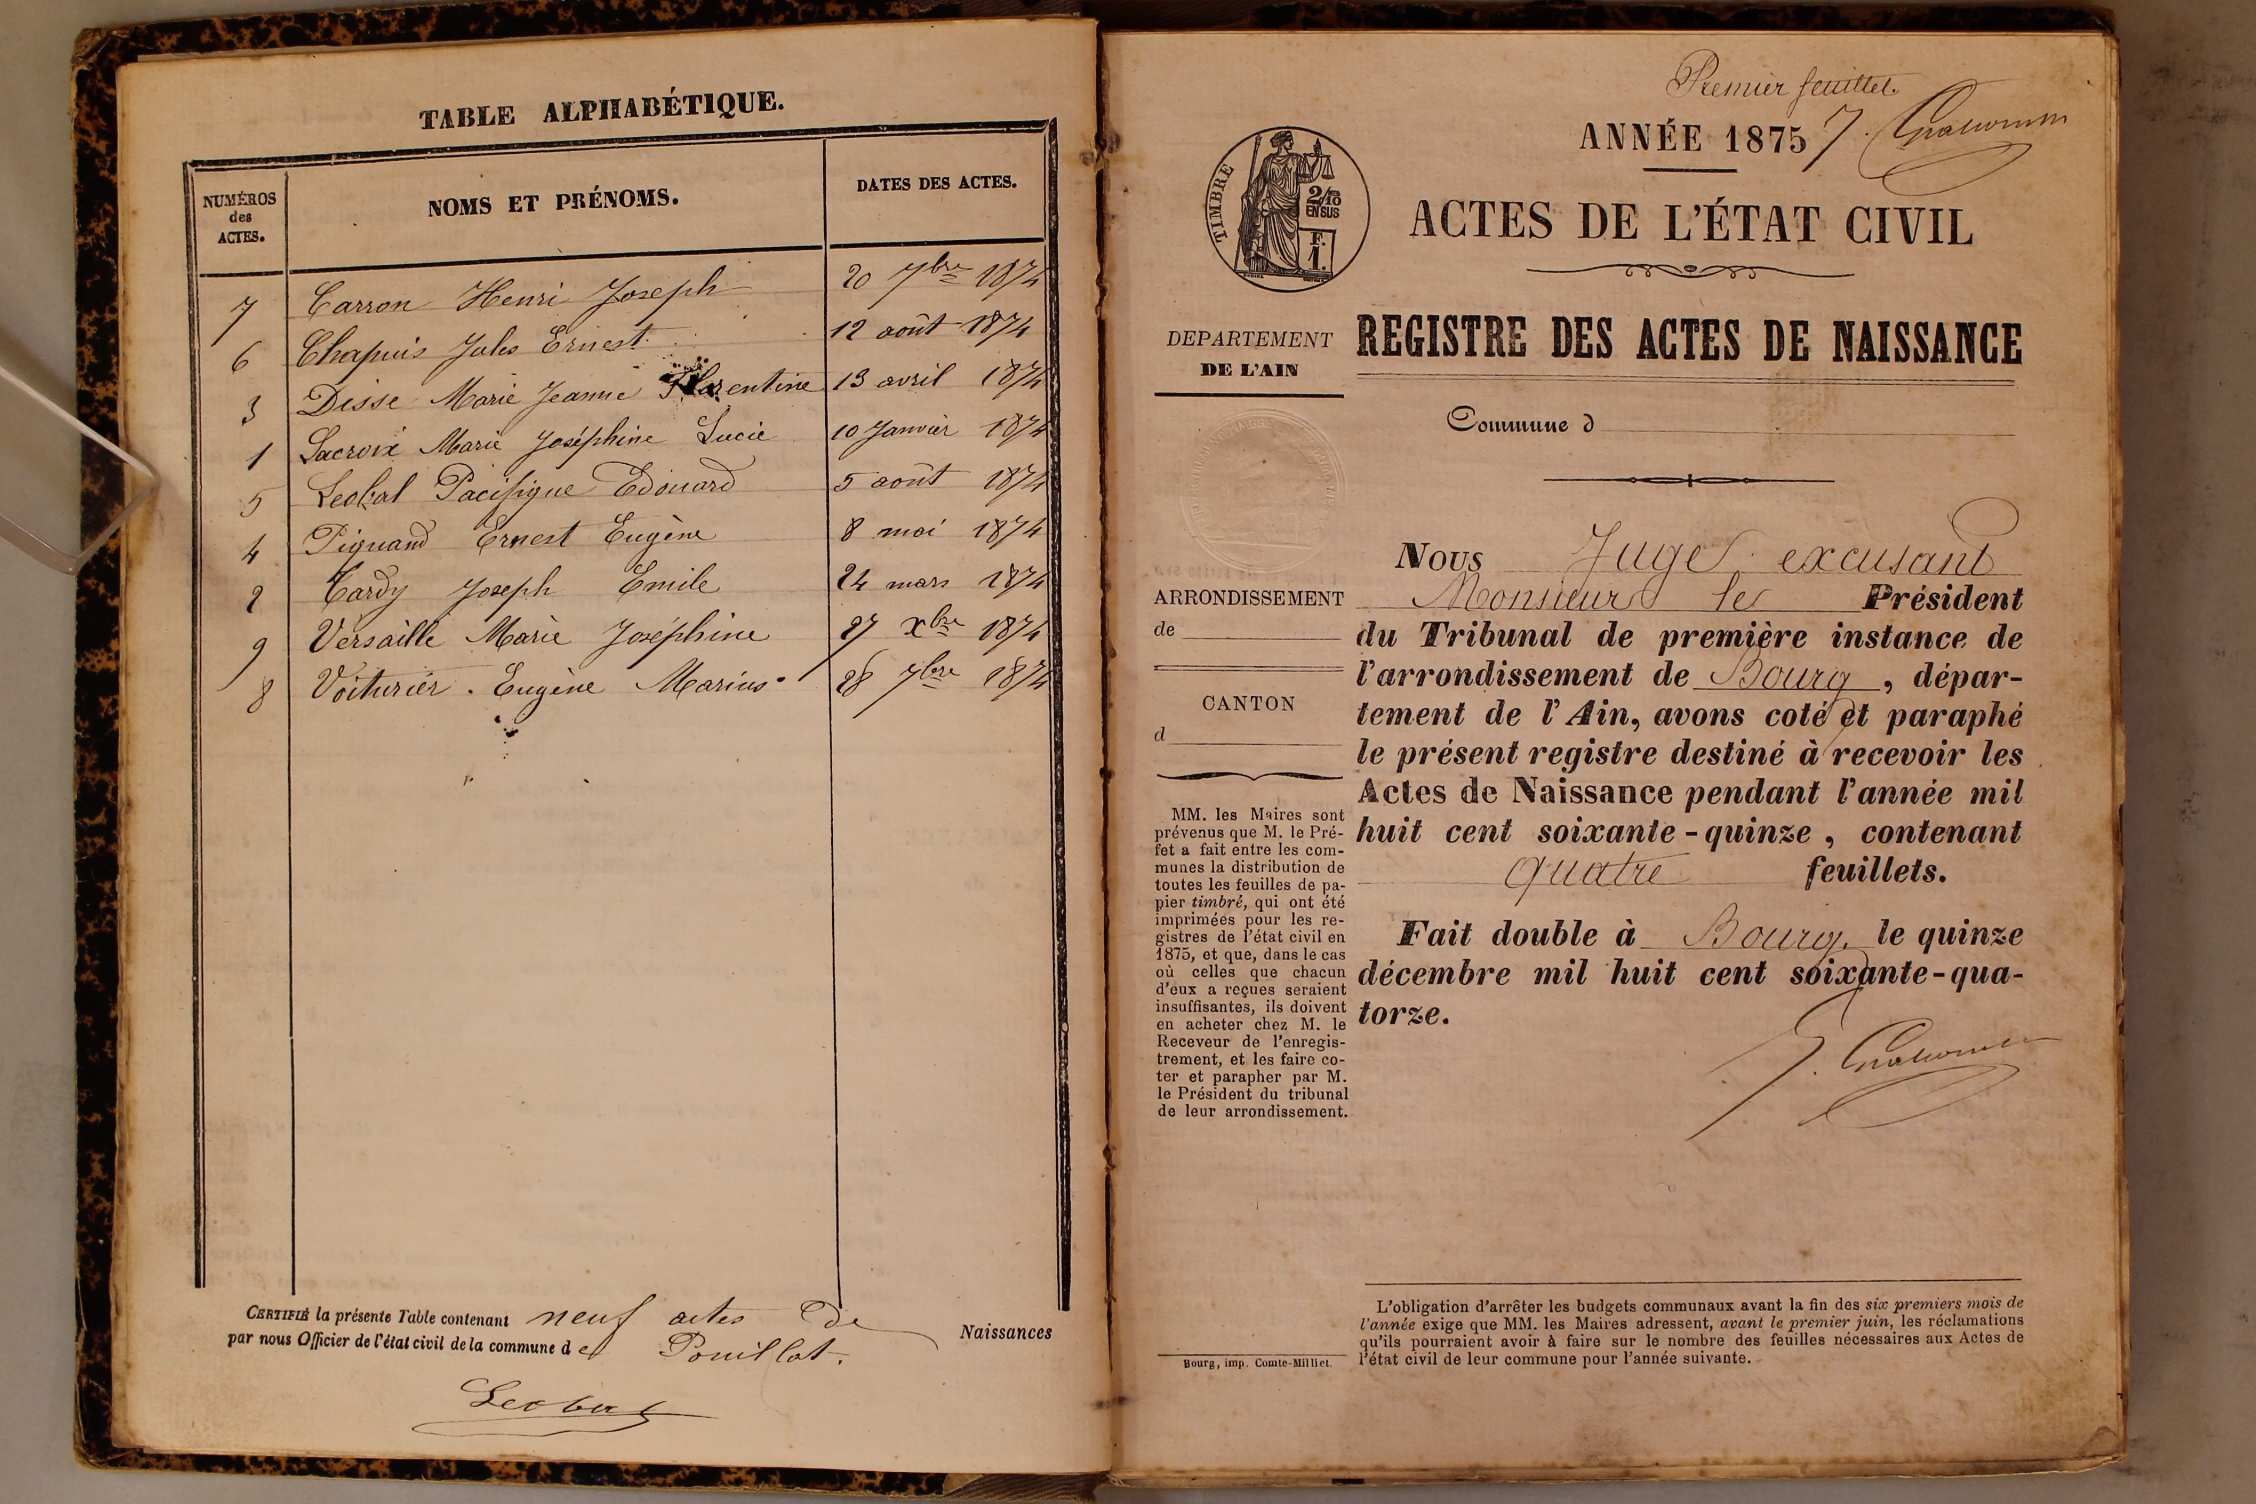 TABLE ALPHABÉTIQUE.
NUMÉROS
des
ACTES.
NOMS ET PRÉNOMS.
DATES DES ACTES.
7 Carron Henri Joseph 20 7bre 1874
6 Chapuis Jules Ernest 12 août 1874
3 Disse Marie Jeanne Florentine 13 avril 1874
1 Lacroix Marie Joséphine Lucie 10 Janvier 1874
5 Leobal Pacifique Edouard 5 août 1874
4 Piquand Ernest Eugène 8 mai 1874
2 Tardy Joseph Emile 24 mars 1874
9 Versaille Marie Joséphine 27 Xbre 1874
8 Voiturier. Eugène Marius 28 7bre 1874
CERTIFIÉ la présente Table contenant neuf actes de Naissances
par nous Officier de l'état civil de la commune de Pouillat.
Leobal
Premier feuillet.
ANNÉE 1875
TIMBRE
2/10
EN SUS
F.
1.
ACTES DE L'ÉTAT CIVIL
DEPARTEMENT
DE L'AIN
REGISTRE DES ACTES DE NAISSANCE
Commune d
ARRONDISSEMENT
de
CANTON
d
MM. les Maires sont
prévenus que M. le Pré-
fet a fait entre les com-
munes la distribution de
toutes les feuilles de pa-
pier timbré, qui ont été
imprimées pour les re-
gistres de l'état civil en
1875, et que, dans le cas
où celles que chacun
d'eux a reçues seraient
insuffisantes, ils doivent
en acheter chez M. le
Receveur de l'enregis-
trement, et les faire co-
ter et parapher par M.
le Président du tribunal
de leur arrondissement.
Bourg, imp. Comte-Milliet.
Nous Juge excusant
Monsieur le Président
du Tribunal de première instance de
l'arrondissement de Bourg, dépar-
tement de l'Ain, avons coté et paraphé
le présent registre destiné à recevoir les
Actes de Naissance pendant l'année mil
huit cent soixante-quinze, contenant
quatre feuillets.
Fait double à Bourg, le quinze
décembre mil huit cent soixante-qua-
torze.
L'obligation d'arrêter les budgets communaux avant la fin des six premiers mois de
l'année exige que MM. les Maires adressent, avant le premier juin, les réclamations
qu'ils pourraient avoir à faire sur le nombre des feuilles nécessaires aux Actes de
l'état civil de leur commune pour l'année suivante.